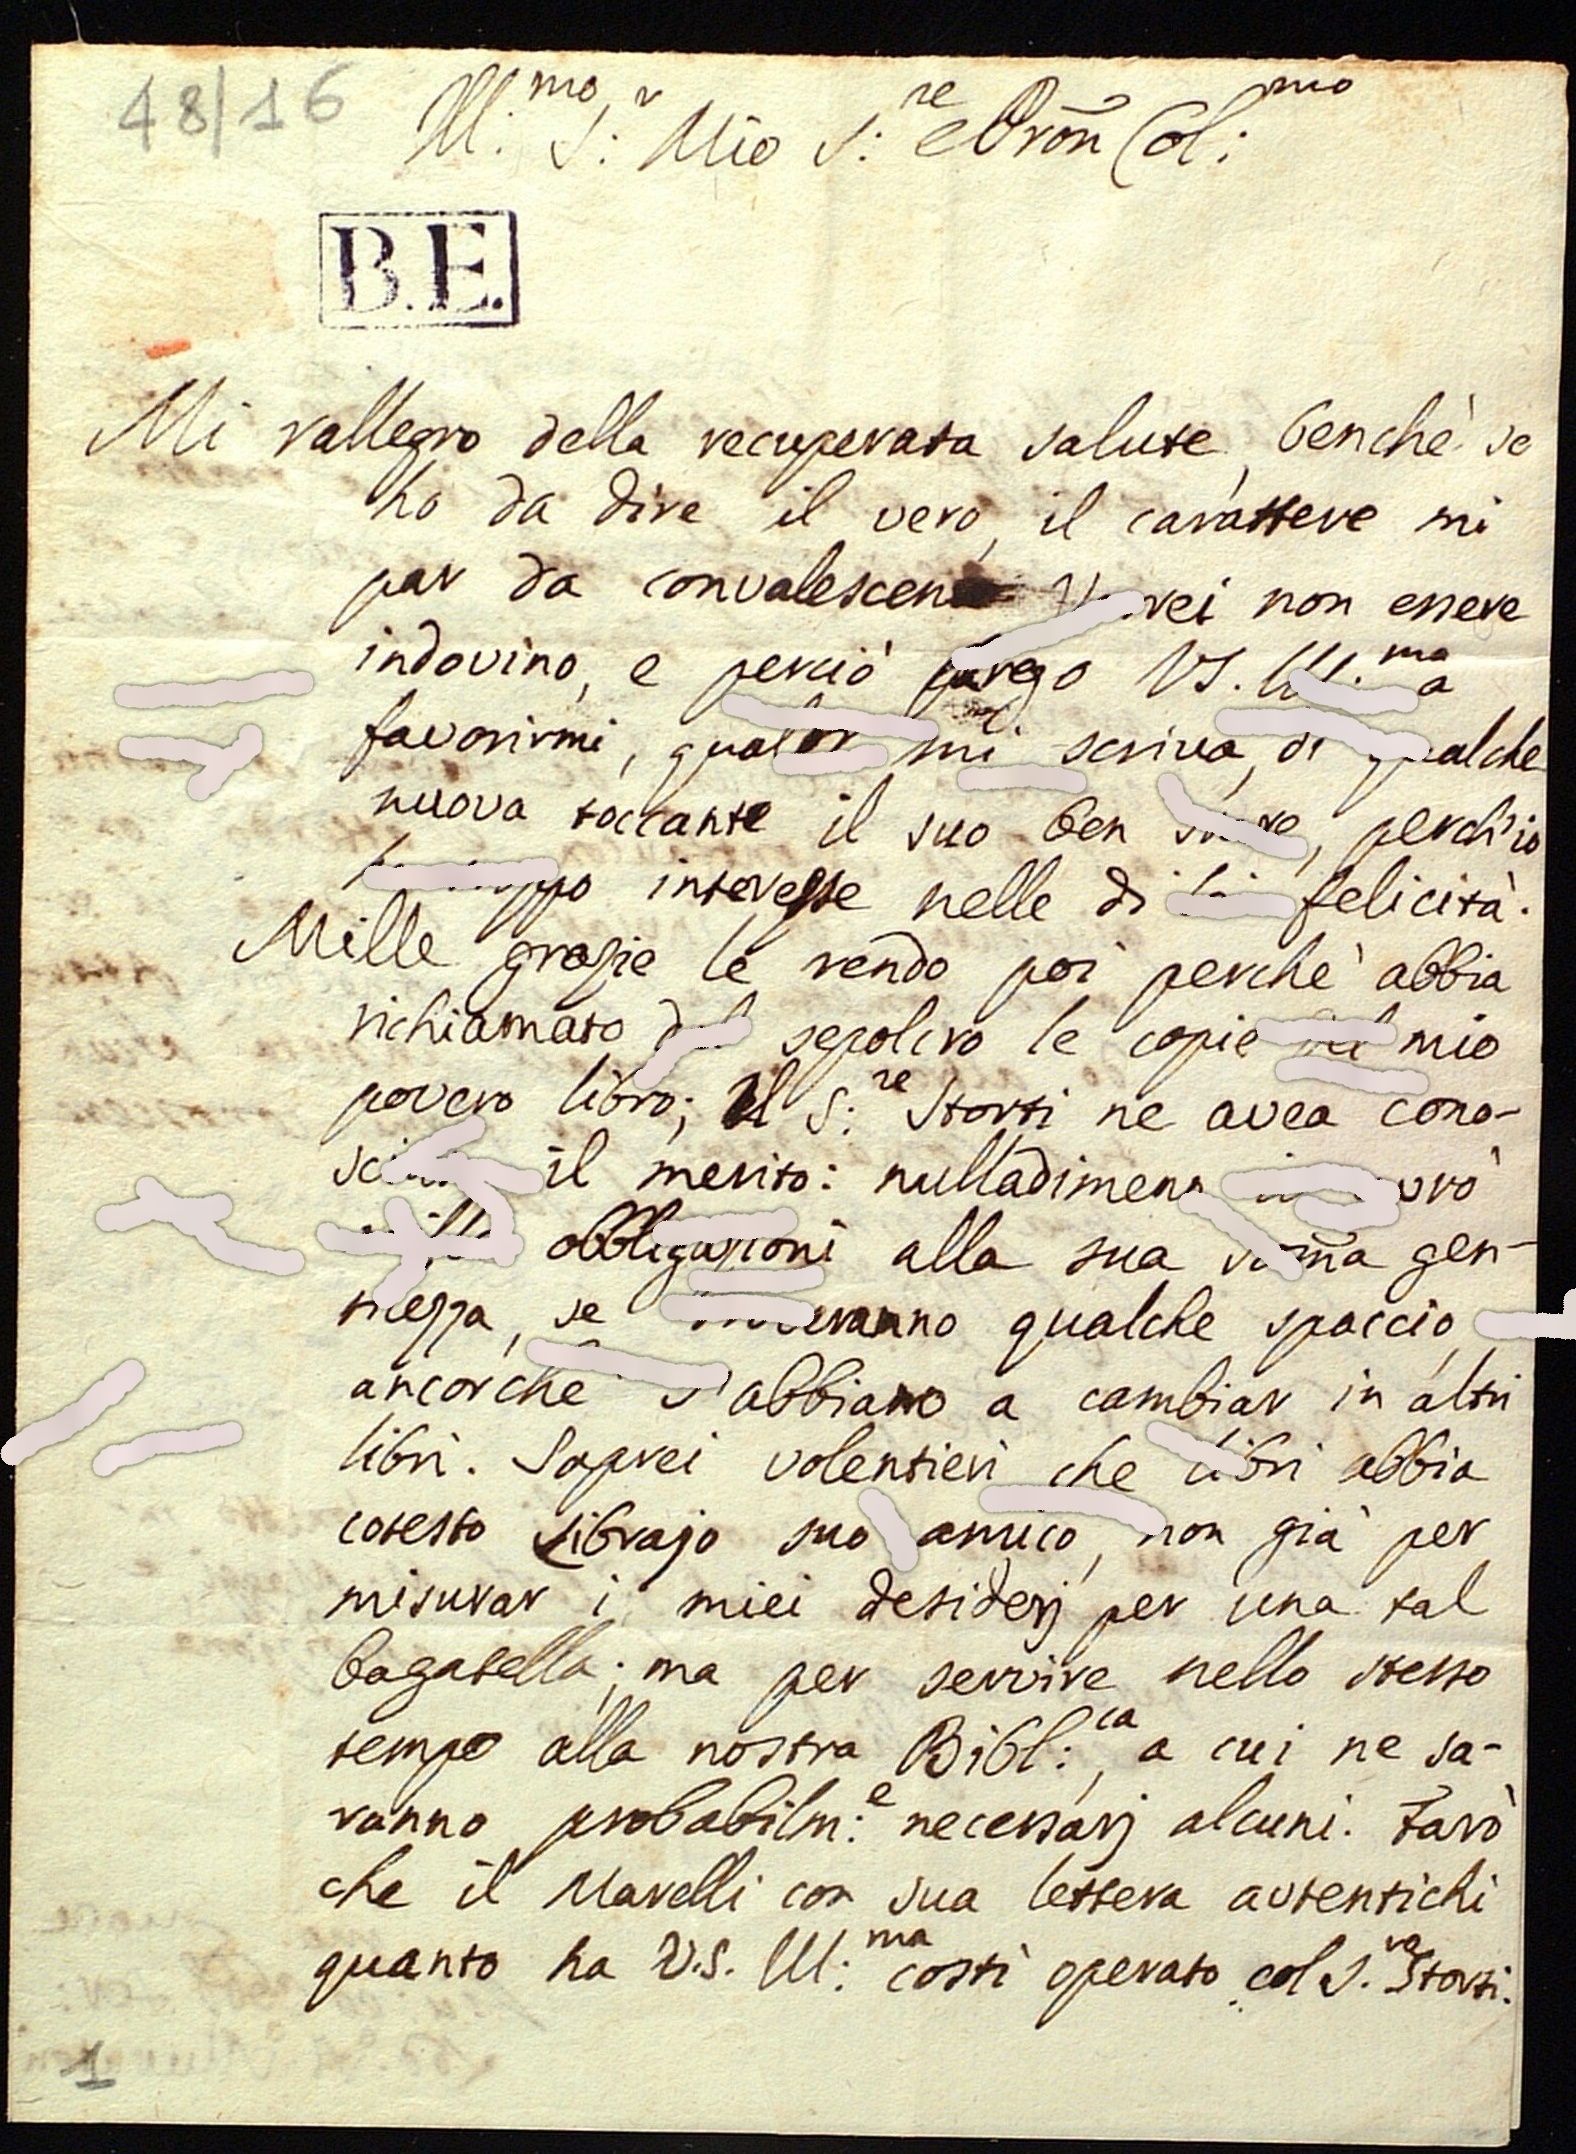 48/16
Ill:mo S:r Mio S:re e Pron Col:mo
B.E.
Mi rallegro della recuperata salute, benchè se
ho da dire il vero, il carattere mi
par da non essere
indovino, e perciò prego VS. Ill:ma
favorirmi, qualor mi scriva, di qualche
nuova toccante il suo ben perch'io
interesse nelle di felicità.
Mille grazie le rendo poi perchè abbia
richiamato dal sepolcro le copie del mio
povero libro; Il S:re Storti ne avea cono-
il merito: nulladimeno
obbligazioni alla sua som̃a gen-
se qualche spaccio,
ancorchè s'abbiano a cambiar in altri
libri. Saprei volentieri che libri abbia
cotesto Librajo suo amico, non già per
misurar i miei desiderj per una tal
bagatella; ma per servire nello stesso
tempo alla nostra Bibl:ca, a cui ne sa-
ranno probabilm:e necessarj alcuni. Farò
che il Marelli con sua lettera autentichi
quanto ha V.S. Ill:ma costì operato col S.re Storti.
1